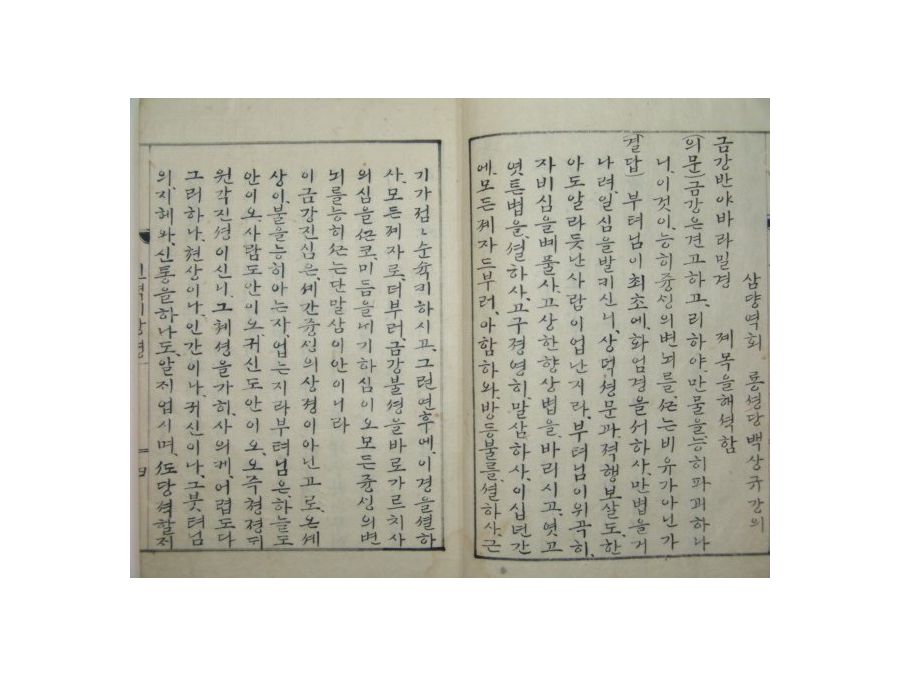 금강반야바라밀경 졔목을해셕함
삼댱역회 룡셩당백상규강의
(의문)금강은견고하고、리하야、만물을능히파괴하나
니、이것이、능히즁싱의변뇌를、는비유가아닌가
(결답) 부텨님이최초에、화엄경을셔하사、만법을거
나려、일심을발키신니、상덕셩문과、젹행보살도、한
아도알라듯난사람이업난지라、부텨님이위곡히、
자비심을베풀사、고상한향상법을、바리시고、엿고
엿튼법을、셜하사、고구졍영히、말삼하사、이십년간
에、모든졔자드부러、아함하와、방등불를、셜하사、근
기가졈〻순슉키하시고、그런연후에、이경을셜하
사、모든졔자로、더부러、금강불셩을바로가르치사
의심을코、미듬을네기하심이오모든즁싱의변
뇌를능히는단말삼이안이니라
이금강진심은、셰간즁싱의상졍이아닌고로、온셰
상이、불을능히아는자、업는지라부텨님은하늘도
안이오、사람도안이오귀신도안이오、오즉쳔졍
원각진셩이신니、그체셩을가히、사의케、어렵도다
그러하나、현상이나、인간이나、귀신이나、그붓텨님
의、지혜와、신통을하나도、알졔업시며、당쳑할졔